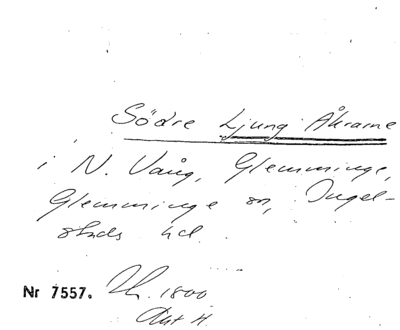 Södre Ljung Åkrarne
i N. Vång, Glemminge,
Glemminge sn, Ingel-
stads hd.
Nr 7557. 1800
Akt 4.